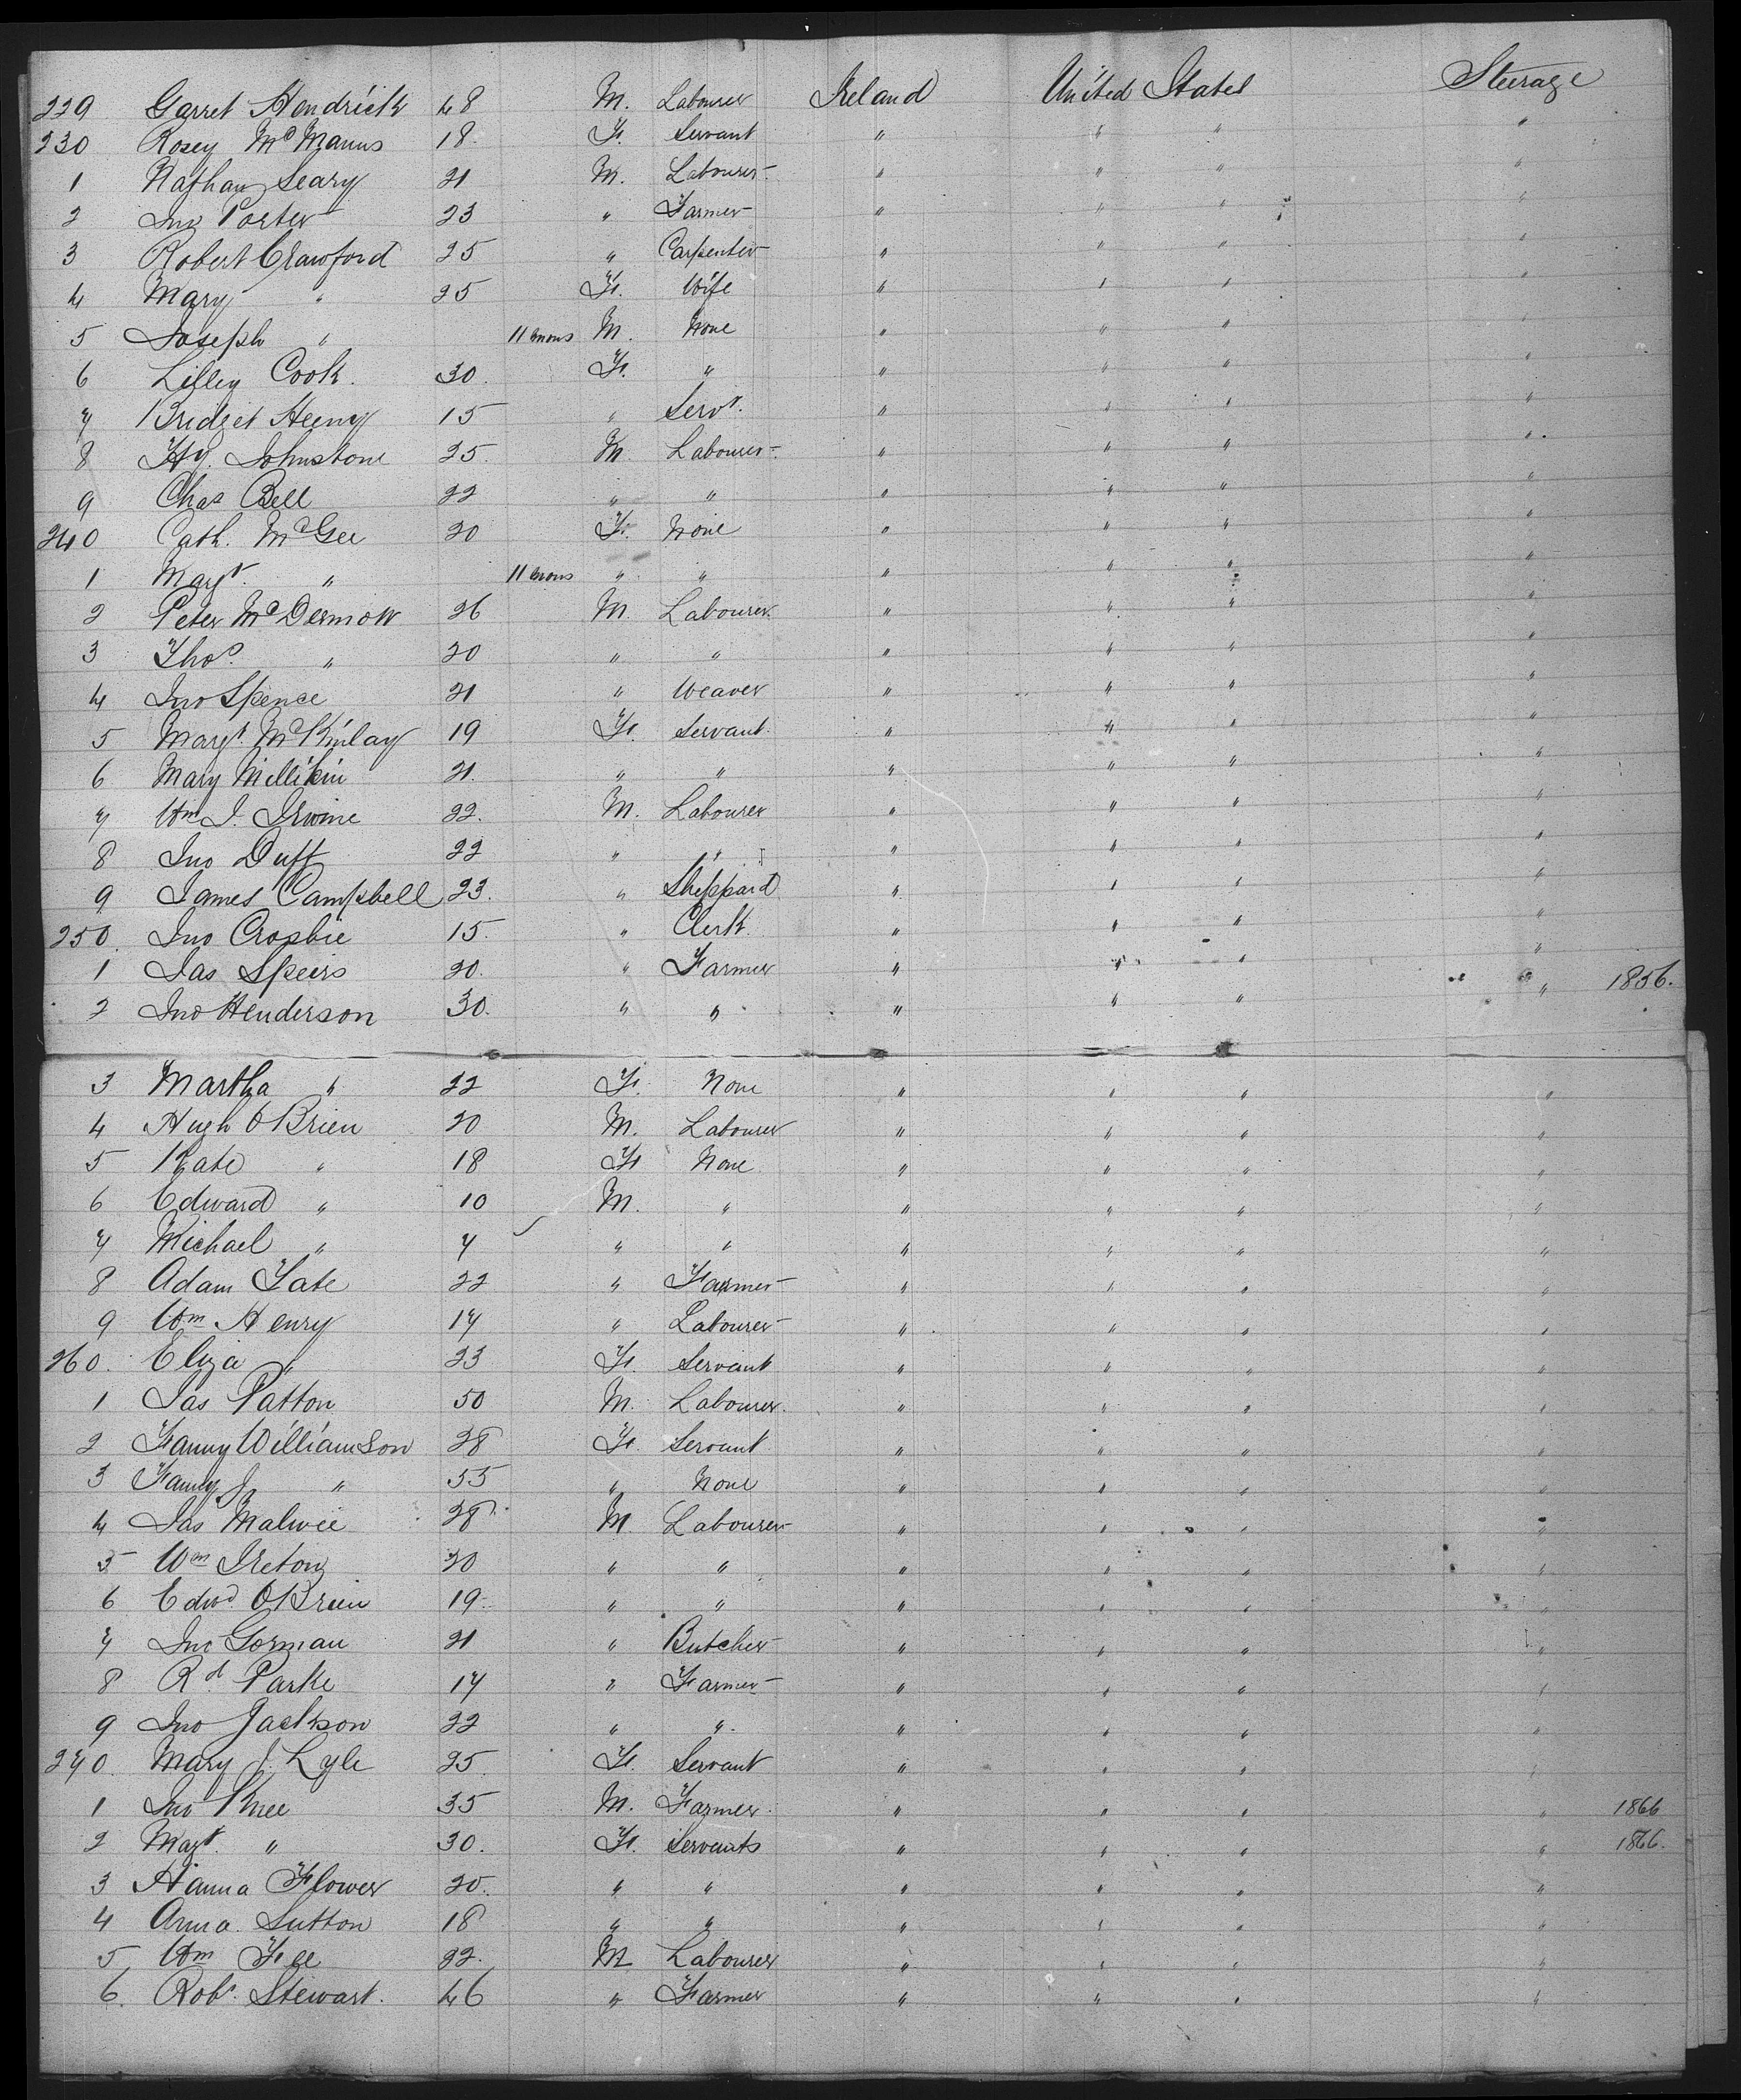 229 Garret Hendrick 48 M. Labourer Ireland United States Steerage
230 Rosey McManus 18. F. Servant " " " "
1 Nathan Seary 21 M. Labourer " " " "
2 Jno Porter 23 " Farmer " " " "
3 Robert Crawford 25 " Carpenter " " " "
4 Mary " 25 F. Wife " " " "
5 Joseph " 11 mons M. None " " " "
6 Lilley Cook. 30. F. " " " " "
7 Bridget Heeny 15 " Servt. " " " "
8 Hy. Johnstone 25. M. Labourer " " " "
9 Chas Bell 22 " " " " " "
240 Cath. McGee 20 F. None " " " "
1 Margt. " 11 mons " " " " " "
2 Peter McDermott 26 M. Labourer. " " " "
3 Thos. " 20 " " " " " "
4 Jno Spence 21 " Weaver " " " "
5 Margt. McKinlay 19 F. Servant. " " " "
6 Mary Millikin 21. " " " " " "
7 Wm J. Irwine 22. M. Labourer " " " "
8 Jno Duff 22 " " " " " "
9 James Campbell 23. " Sheppard " " " "
250. Jno Crosbie 15. " Clerk. " " " "
1 Jas Speirs 20. " Farmer " " " "
2 Jno Henderson 30. " " " " " " 1856.
3 Martha " 22 F. None " " " "
4 Hugh OBrien 20 M. Labourer " " " "
5 Kate " 18 F. None " " " "
6 Edward " 10 M. " " " " "
7 Michael " 7 " " " " " "
8 Adam Tate 22 " Farmer " " " "
9 Wm Henry 17 " Labourer " " " "
260. Eliza " 23 F. Servant " " " "
1 Jas Patton 50 M. Labourer. " " " "
2 Fanny Williamson 28 F. Servant " " " "
3 Fanny J. " 55 " None " " " "
4 Jas 28 M. Labourer " " " "
5 Wm Ireton 20 " " " " " "
6 Edwd OBrien 19 " " " " " "
7 Jno Gorman 21 " Butcher " " " "
8 Rd. Parke 17 " Farmer " " " "
9 Jno Jackson 22 " " " " " "
270. Mary J. Lyle 25. F. Servant " " " "
1 Jno Knee 35 M. Farmer. " " " " 1866
2 Margt. " 30. F. Servants " " " " 1866.
3 Hanna Flower 20. " " " " " "
4 Anna Sutton 18 " " " " " "
5 Wm Fee 22. M Labourer " " " "
6. Robt. Stewart. 46 " Farmer " " " "